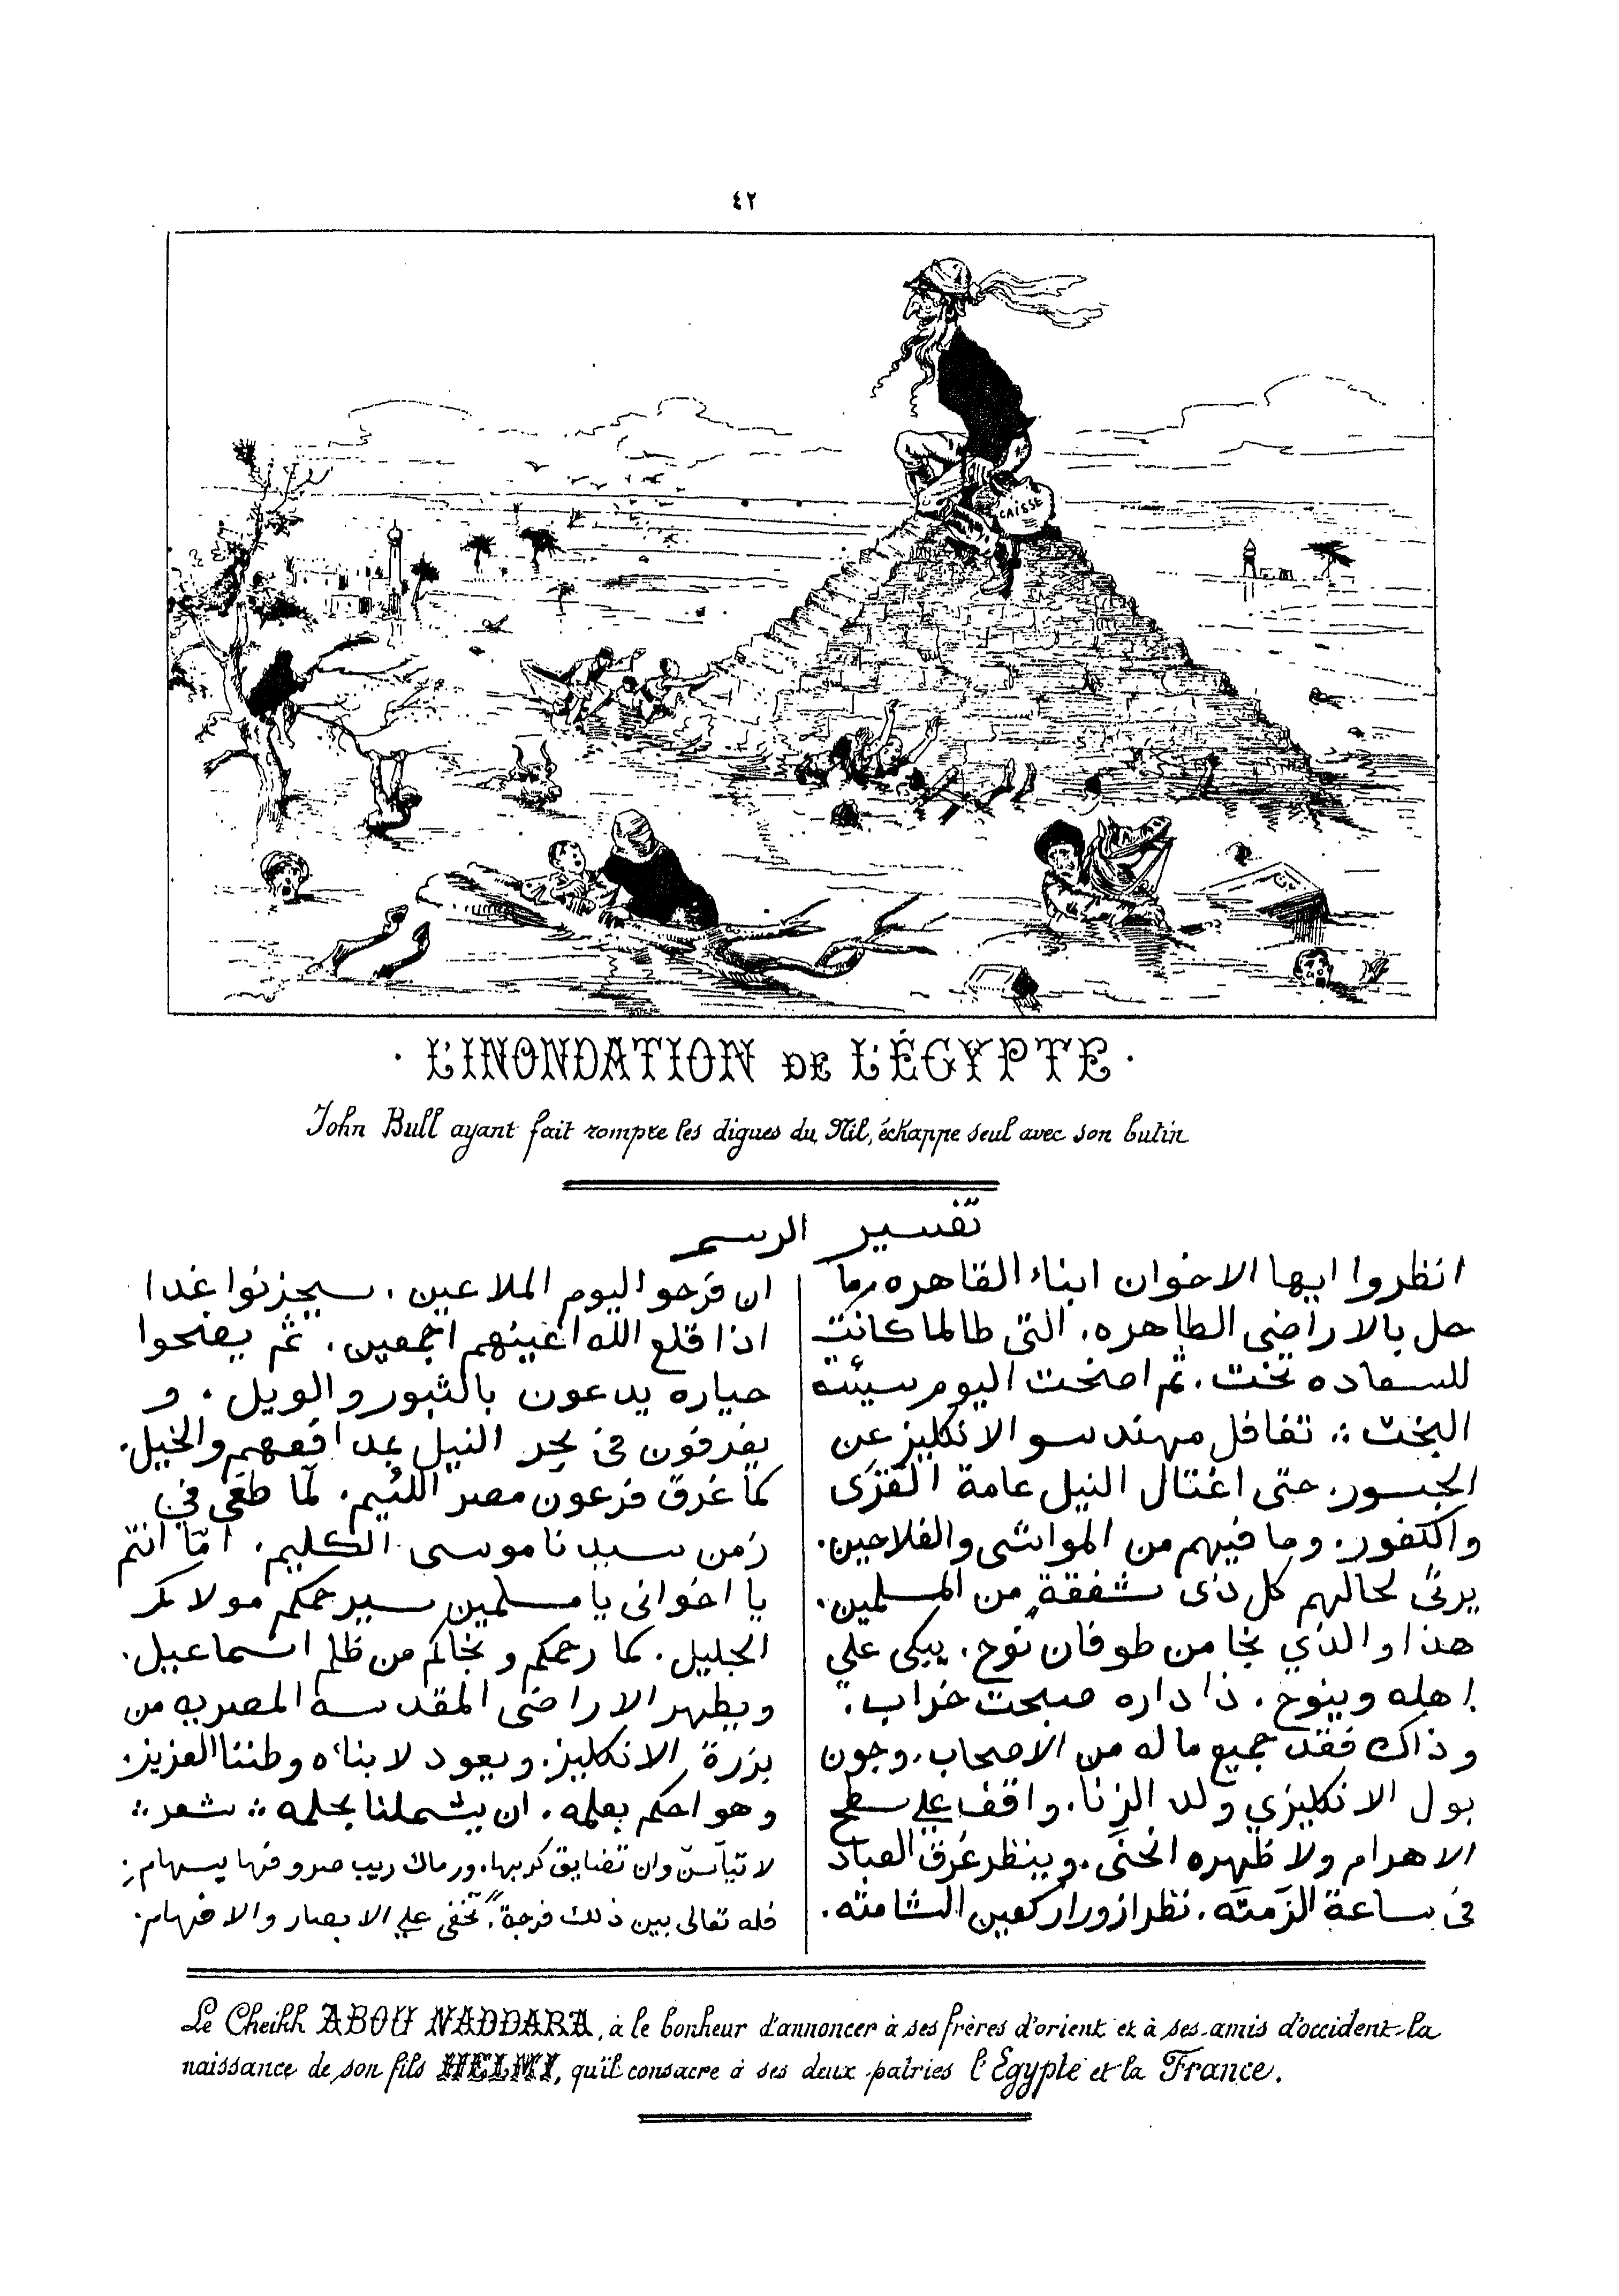 ٤٢
CAISSE
· L'INONDATION DE L'ÉGYPTE ·
John Bull ayant fait rompre les digues du Nil, échappe seul avec son butin
تفسير الرسم
انظروا ايها الاخوان ابناء القاهره. ما
حل بالاراضى الطاهره. التى طالما كانت
للسعاده تحت. ثم اضحت اليوم سيئة
البخت ∴ تغافل مهندسو الانكليز عن
الجسور. حتى اغتال النيل عامة القرى
والكفور. وما فيهم من المواشى والفلاحين.
يرثى لحالهم كل ذى شفقة من المسلمين.
هذا والذي نجا من طوفان نوح. يبكى علي
اهله وينوح. ذا داره صبحت خراب.
وذاك فقد جميع ماله من الاصحاب. وجون
بول الانكليزي ولد الزنا. واقف علي سطح
الاهرام ولا ظهره انحنى. وينظر غرق العباد
فى ساعة الزمته. نظر ازورار كعين الشامته.
ان فرحو اليوم الملاعين. سيحزنوا غدا
اذا قلع الله اعينهم اجمعين. ثم يضحوا
حياره يدعون بالثبور والويل. و
يغرقون فى بحر النيل بمدافعهم والخيل.
كما غرق فرعون مصر اللئيم. لمّا طغى في
زمن سيدنا موسى الكليم. امّا انتم
يا اخوانى يا مسلمين سيرحمكم مولاكم
الجليل. كما رحمكم ونجاكم من ظلم اسماعيل.
ويطهر الاراضى المقدسة المصريه من
بزرة الانكليز. ويعود لابناه وطننا العزيز.
وهو احكم بعلمه. ان يشملنا بحلمه ∴ شعر ∴
لا تيأسنّ وان تضايق كربها. ورماك ريب صروفها بسهام:
فله تعالى بين ذلك فرجة. تخفى علي الابصار والافهام.
Le Cheikh ABOU NADDARA, à le bonheur d'annoncer à ses frères d'orient et à ses amis d'occident la
naissance de son fils HELMI, qu'il consacre à ses deux patries l'Égypte et la France.